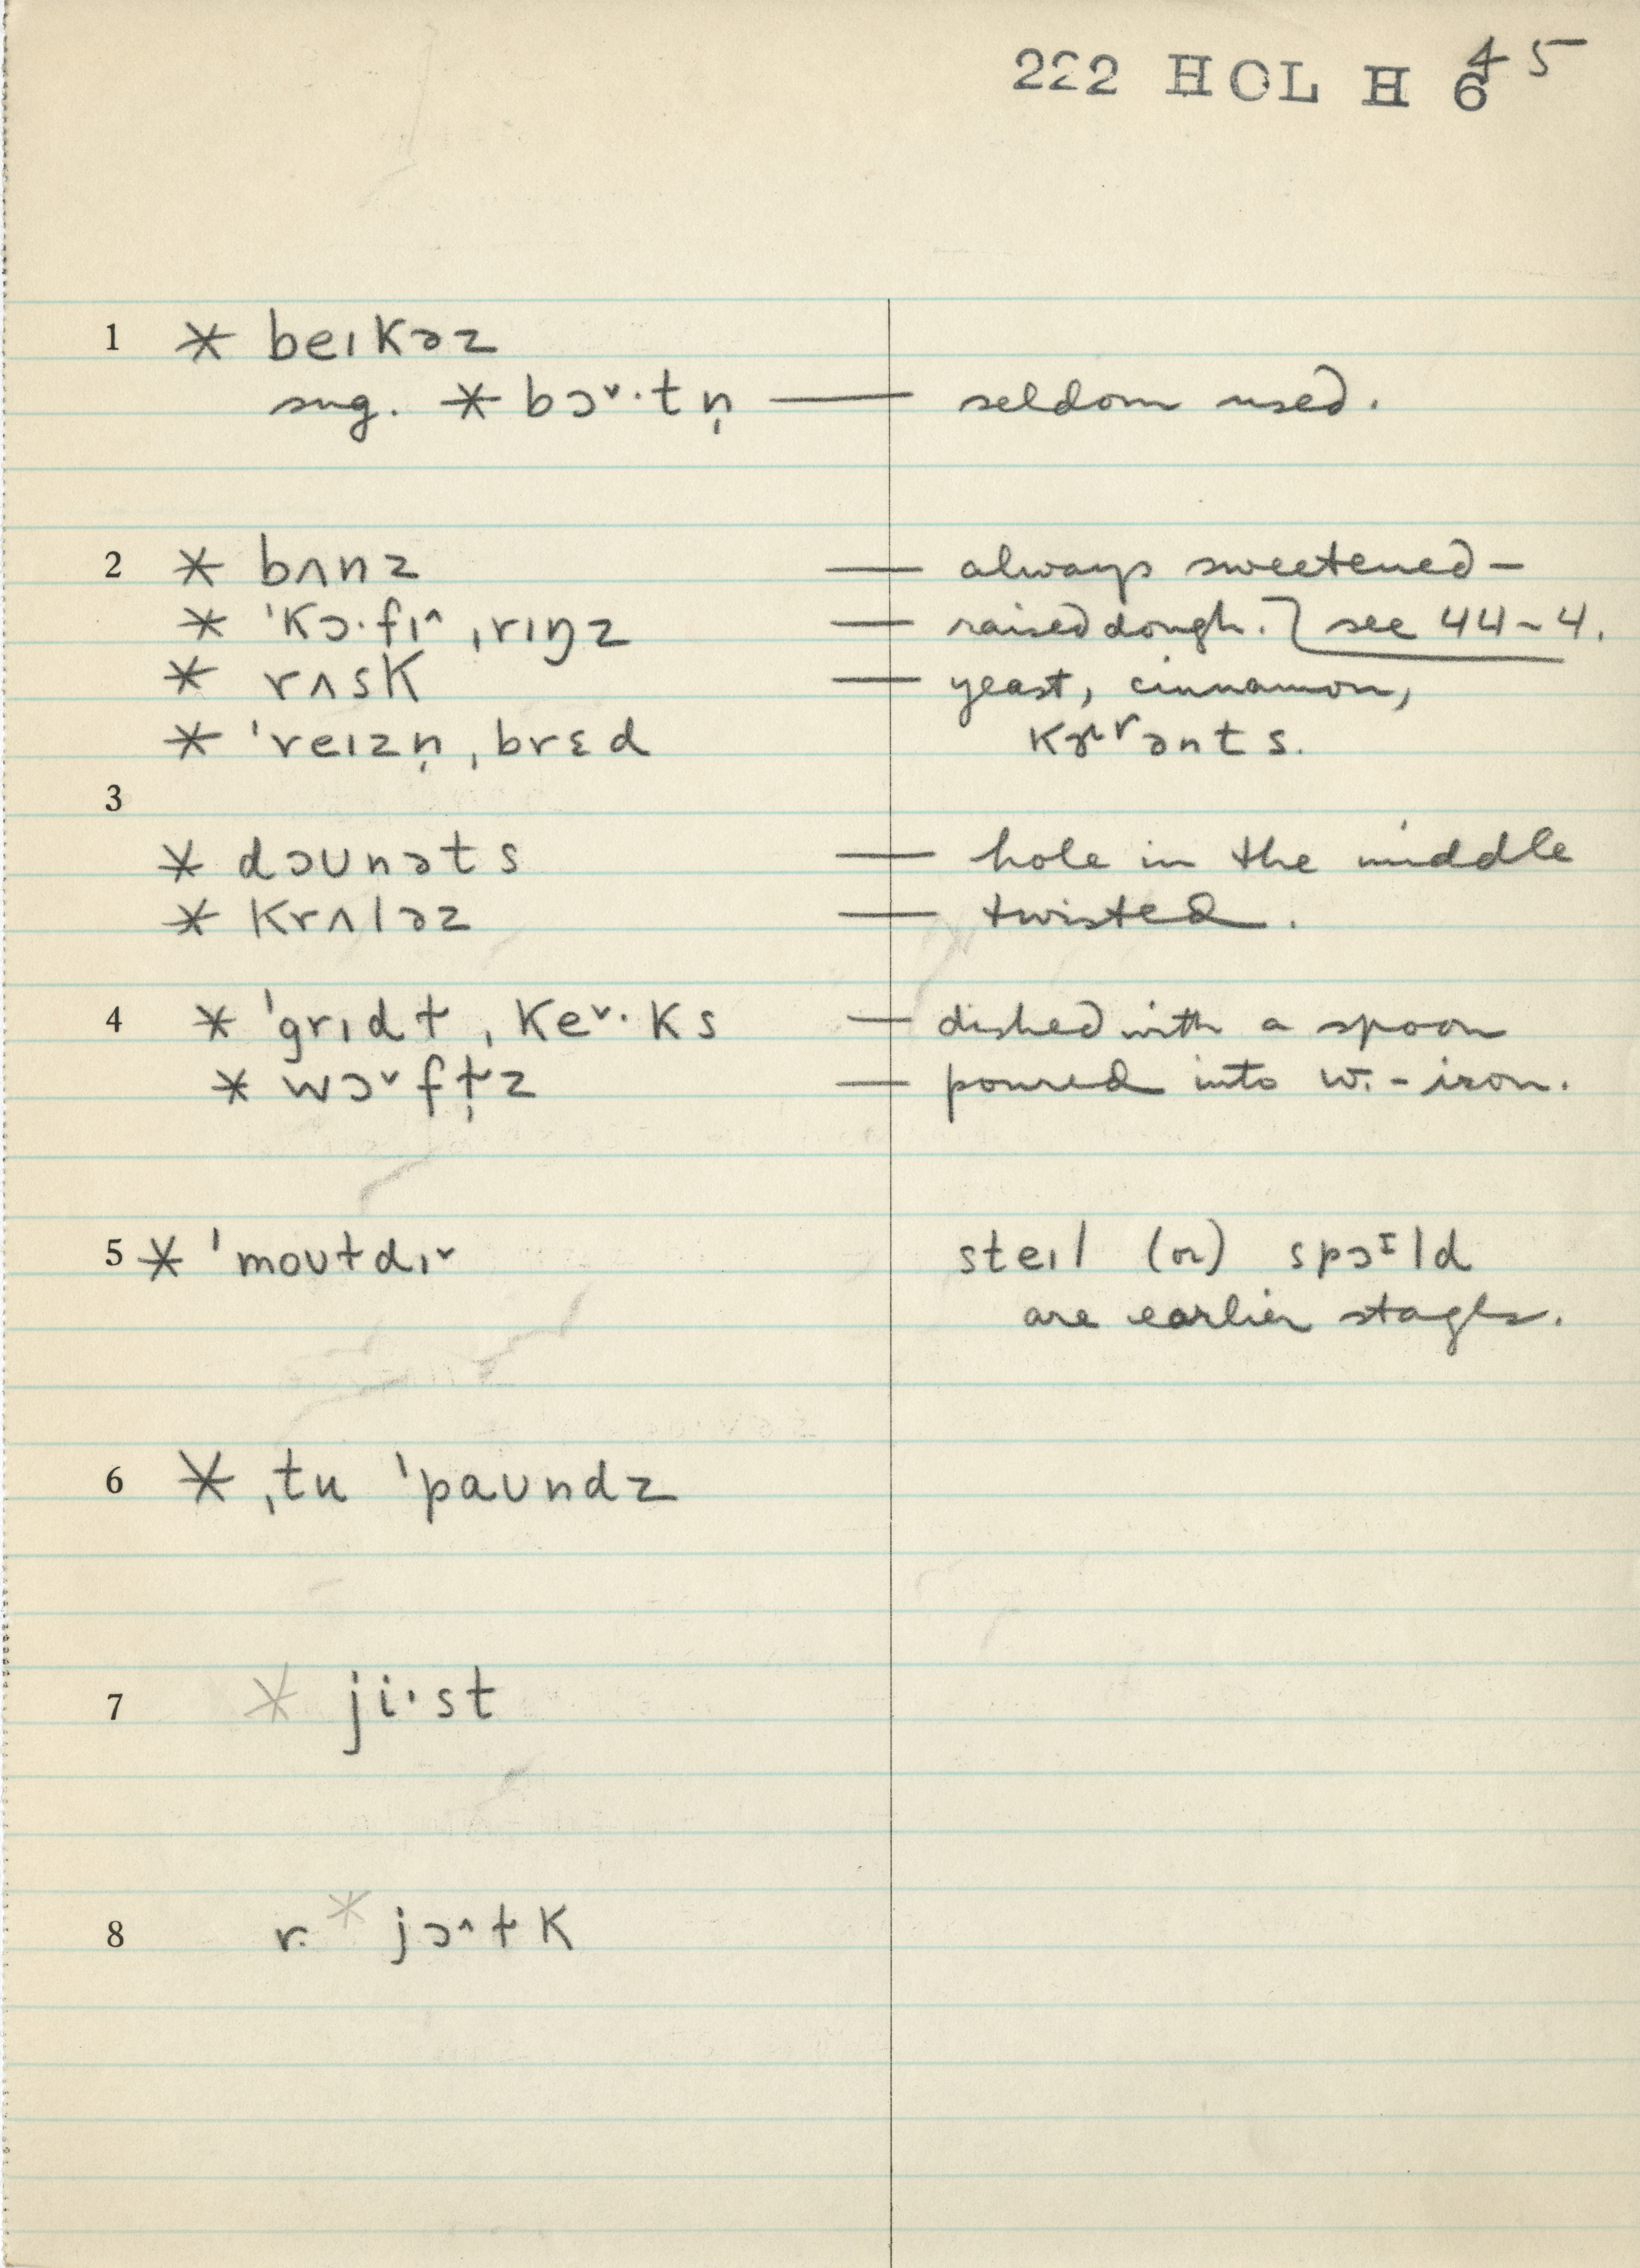 222 HOL H 6 45
1 * beɪkəz
sug. * bɔ˅·tn̩ — seldom used.
2 * bʌnz — always sweetened —
* ˈkɔ·fɪ˄ ˌrɪŋz — raised dough. see 44-4.
* rʌsk — yeast, cinnamon,
* ˈreɪzn̩ ˌbrɛd
3
* dɔʊnəts — hole in the middle
* krʌləz — twisted.
4 * ˈgrɪdɫ ˌke˅·ks — dished with a spoon
* wɔ˅fɫ̩z — poured into w.-iron.
5 * ˈmoʊɫdɪ˅ steɪl (or) spɔɪld
are earlier stages.
6 * ˌtu ˈpaʊndz
7 * ji·st
8 r. * jɔ˄ɫk